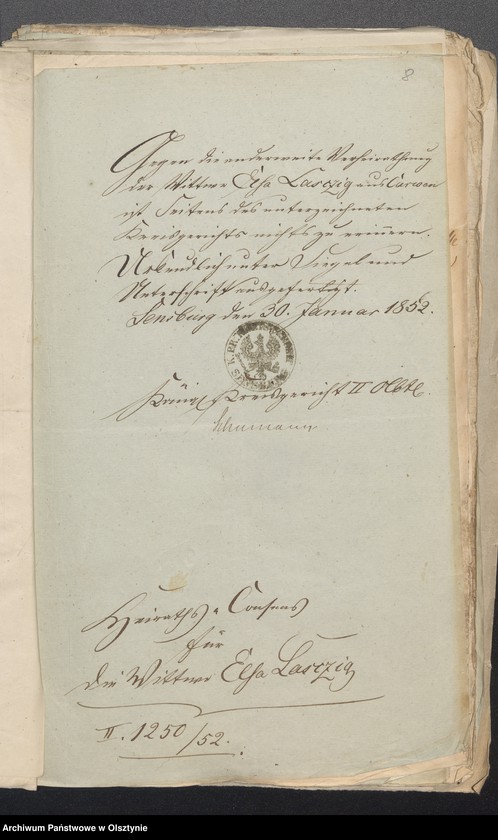 8
Gegen die anderweite Verheirathung
der Wittwe Elsa Lasczig aus Carwen
ist Seitens des unterzeichneten
Kreisgerichts nichts zu erinnern.
Urkundlich unter Siegel und
Unterschrift ausgefertigt.
Sensburg den 30. Januar 1852.
Königl Kreisgericht II Abtl.
Schumann
Heiraths-Consens
für
die Wittwe Elsa Lasczig
II. 1250/52.
Archiwum Państwowe w Olsztynie